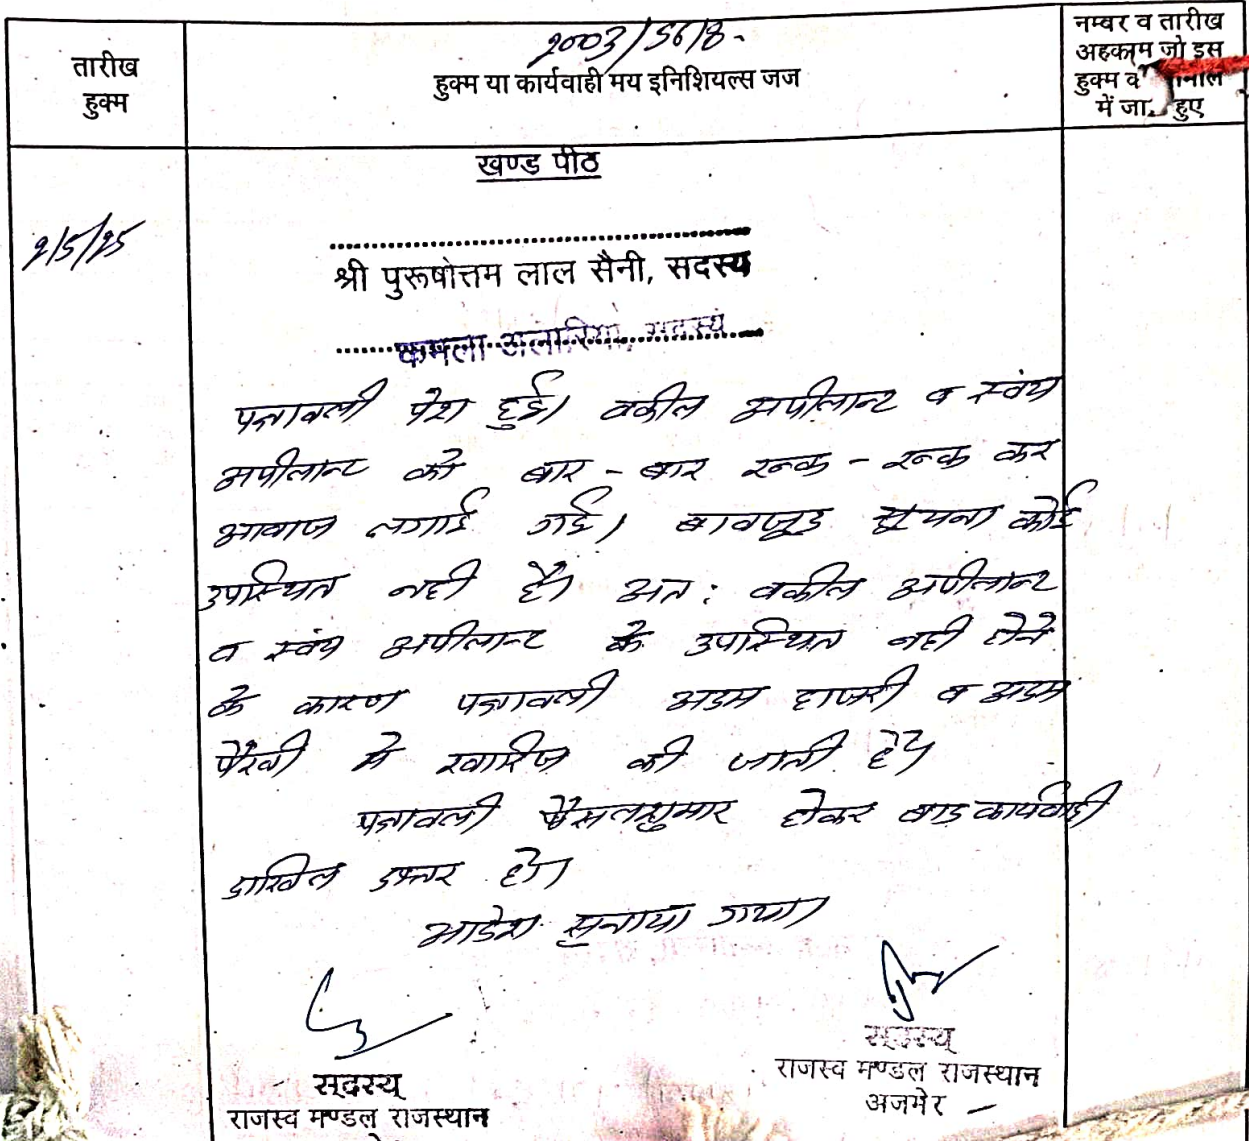 तारीख
हुक्म
2003/5618-
हुक्म या कार्यवाही मय इनिशियल्स जज
नम्बर व तारीख
अहकाम जो इस
हुक्म व
में जा हुए
खण्ड पीठ
2/5/25
श्री पुरूषोत्तम लाल सैनी, सदस्य
कमला अलारिया, सदस्य
पत्रावली पेश हुई। वकील अपीलान्ट व स्वंय
अपीलान्ट को बार-बार रूक-रूक कर
आवाज लगाई गई। बावजूद सूचना कोई
उपस्थित नही है। अत: वकील अपीलान्ट
व स्वंय अपीलान्ट के उपस्थित नही होने
के कारण पत्रावली अदम हाजरी व अदम
पैरवी मे खारिज की जाती है।
पत्रावली फैसलशुमार होकर बाद कार्यवाही
दाखिल दफ्तर हो।
आदेश सुनाया गया।
सदस्य
राजस्व मण्डल राजस्थान
सदस्य
राजस्व मण्डल राजस्थान
अजमेर